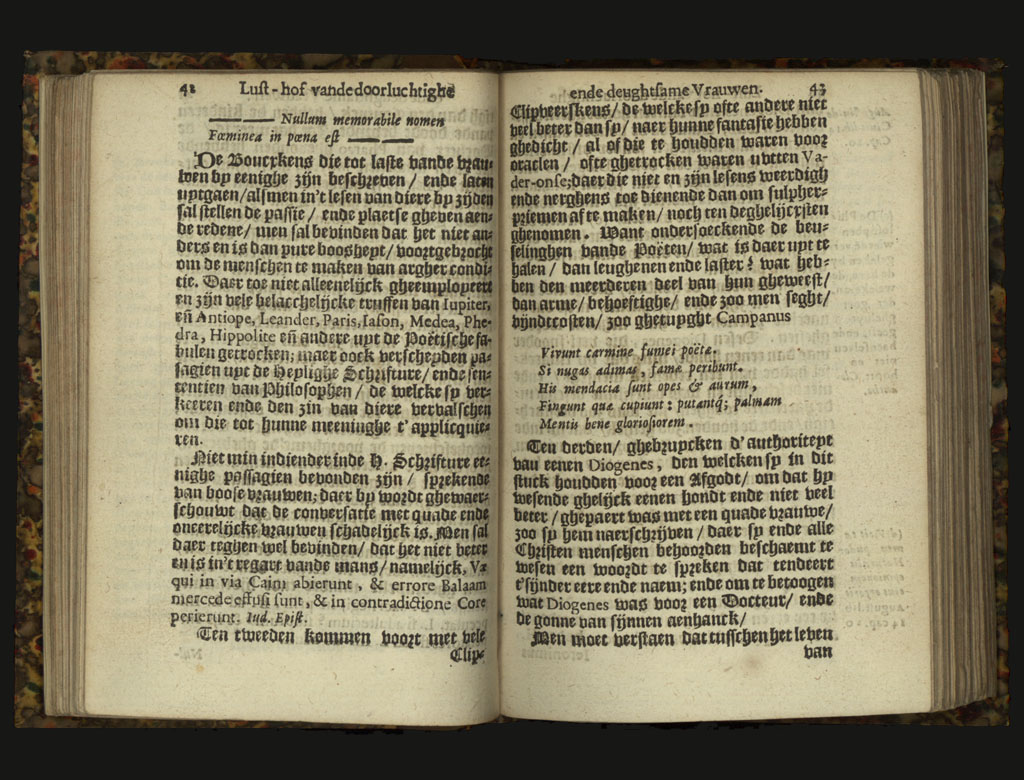 42 Lust-hof vande doorluchtighe
Nullum memorabile nomen
Fœminea in pœna est
De Bouckens die tot laste vande vrau-
wen by eenighe zijn beschreven / ende laten
uytgaen / alsmen in't lesen van diere by zijden
sal stellen de passie / ende plaetse gheven aen-
de redene / men sal bevinden dat het niet an-
ders en is dan pure boosheyt / voortgebrocht
om de menschen te maken van argher condi-
tie. Daer toe niet alleenelijck gheemployeert
en zijn vele belacchelijcke truffen van Iupiter,
eñ Antiope, Leander, Paris, Iason, Medea, Phe-
dra, Hippolite eñ andere uyt de Poëtische fa-
bulen getrocken; maer oock verscheyden pa-
sagien uyt de Heylighe Schrifture / ende sen-
tentien van Philosophen / de welcke sy ver-
keeren ende den zin van diere vervalschen
om die tot hunne meeninghe t'applicquie-
ren.
Niet min indien der inde H. Schrifture ee-
nighe passagien bevonden zijn / sprekende
van boose vrauwen; daer by wordt ghewaer-
schouwt dat de conversatie met quade ende
oneerelijcke vrauwen schadelijck is. Men sal
daer teghen wel bevinden / dat het niet beter
en is in't regart vande mans / namelijck, Væ
qui in via Cain abierunt, & errore Balaam
mercede effusi sunt, & in contradictione Core
perierunt. Iud. Epist.
Ten tweeden kommen voort met vele
Clip-
ende deughtsame Vrauwen. 43
Clipveerskens / de welcke sy ofte andere niet
veel beter dan sy / naer hunne fantasie hebben
ghedicht / al of die te houdden waren voor
oraclen / ofte ghetrocken waren uytten Va-
der-onse; daer die niet en zijn lesens weerdigh
ende nerghens toe dienende dan om sulpher-
priemen af te maken / noch ten deghelijcxsten
ghenomen. Want ondersoeckende de beu-
selinghen vande Poëten / wat is daer uyt te
halen / dan leughenen ende laster? wat heb-
ben den meerderen deel van hun gheweest /
dan arme / behoeftighe / ende zoo men seght /
bijndtcosten / zoo ghetuyght Campanus
Vivunt carmine fumei poëtæ.
Si nugas adimas, famæ peribunt.
His mendacia sunt opes & aurum,
Fingunt quæ cupiunt: putantq; palmam
Mentis bene gloriosiorem.
Ten derden / ghebruycken d'authoriteyt
van eenen Diogenes, den welcken sy in dit
stuck houdden voor een Afgodt / om dat hy
wesende ghelijck eenen hondt ende niet veel
beter / ghepaert was met een quade vrauwe /
zoo sy hem naerschrijven / daer sy ende alle
Christen menschen behoorden beschaemt te
wesen een woordt te spreken dat tendeert
t'sijnder eere ende naem; ende om te betoogen
wat Diogenes was voor een Docteur / ende
de gonne van sijnnen aenhanck /
Men moet verstaen dat tusschen het leven
van